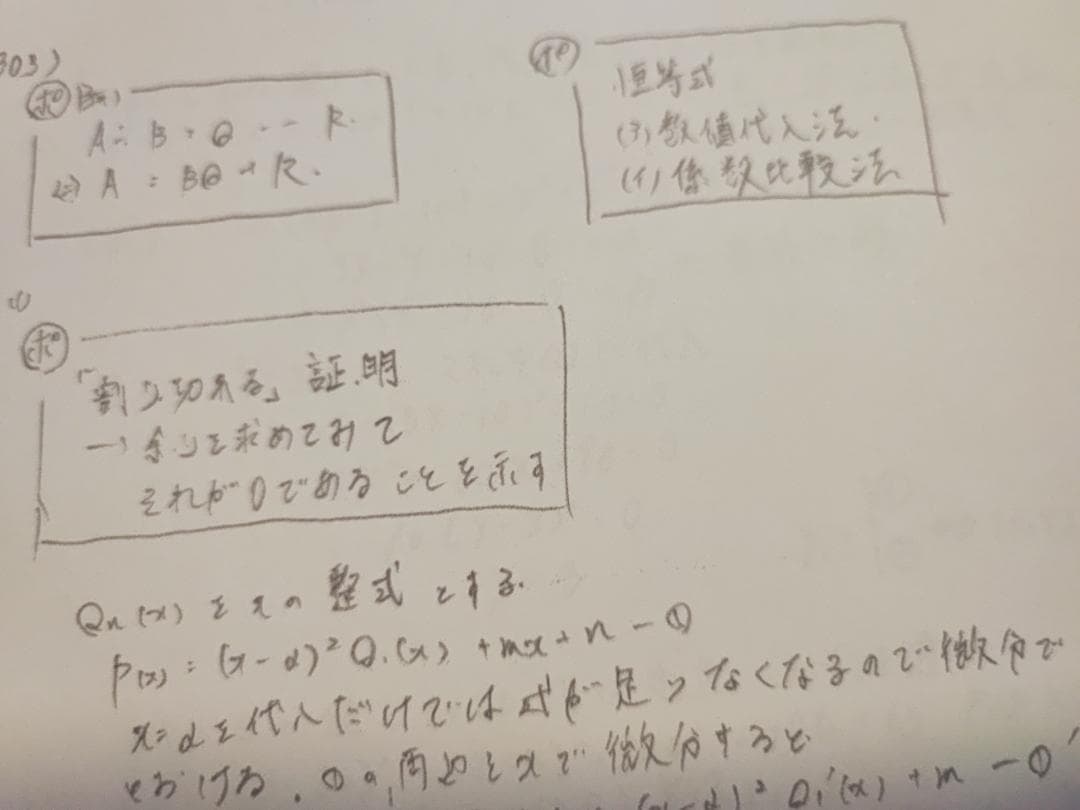 303)
ポ
A÷B=Q…R.
⇔ A = BQ+R.
ポ
恒等式
(ア)数値代入法.
(イ)係数比較法.
(1)
ポ
「割り切れる」証明
→余りを求めてみて
それが0であることを示す
Qn(x)をxの整式とする.
P(x)=(x-α)²Q₁(x)+mx+n-①
x=αを代入だけでは式が足りなくなるので微分で
①の両辺をxで微分すると
(x-α)²Q₁'(x)+m-①'